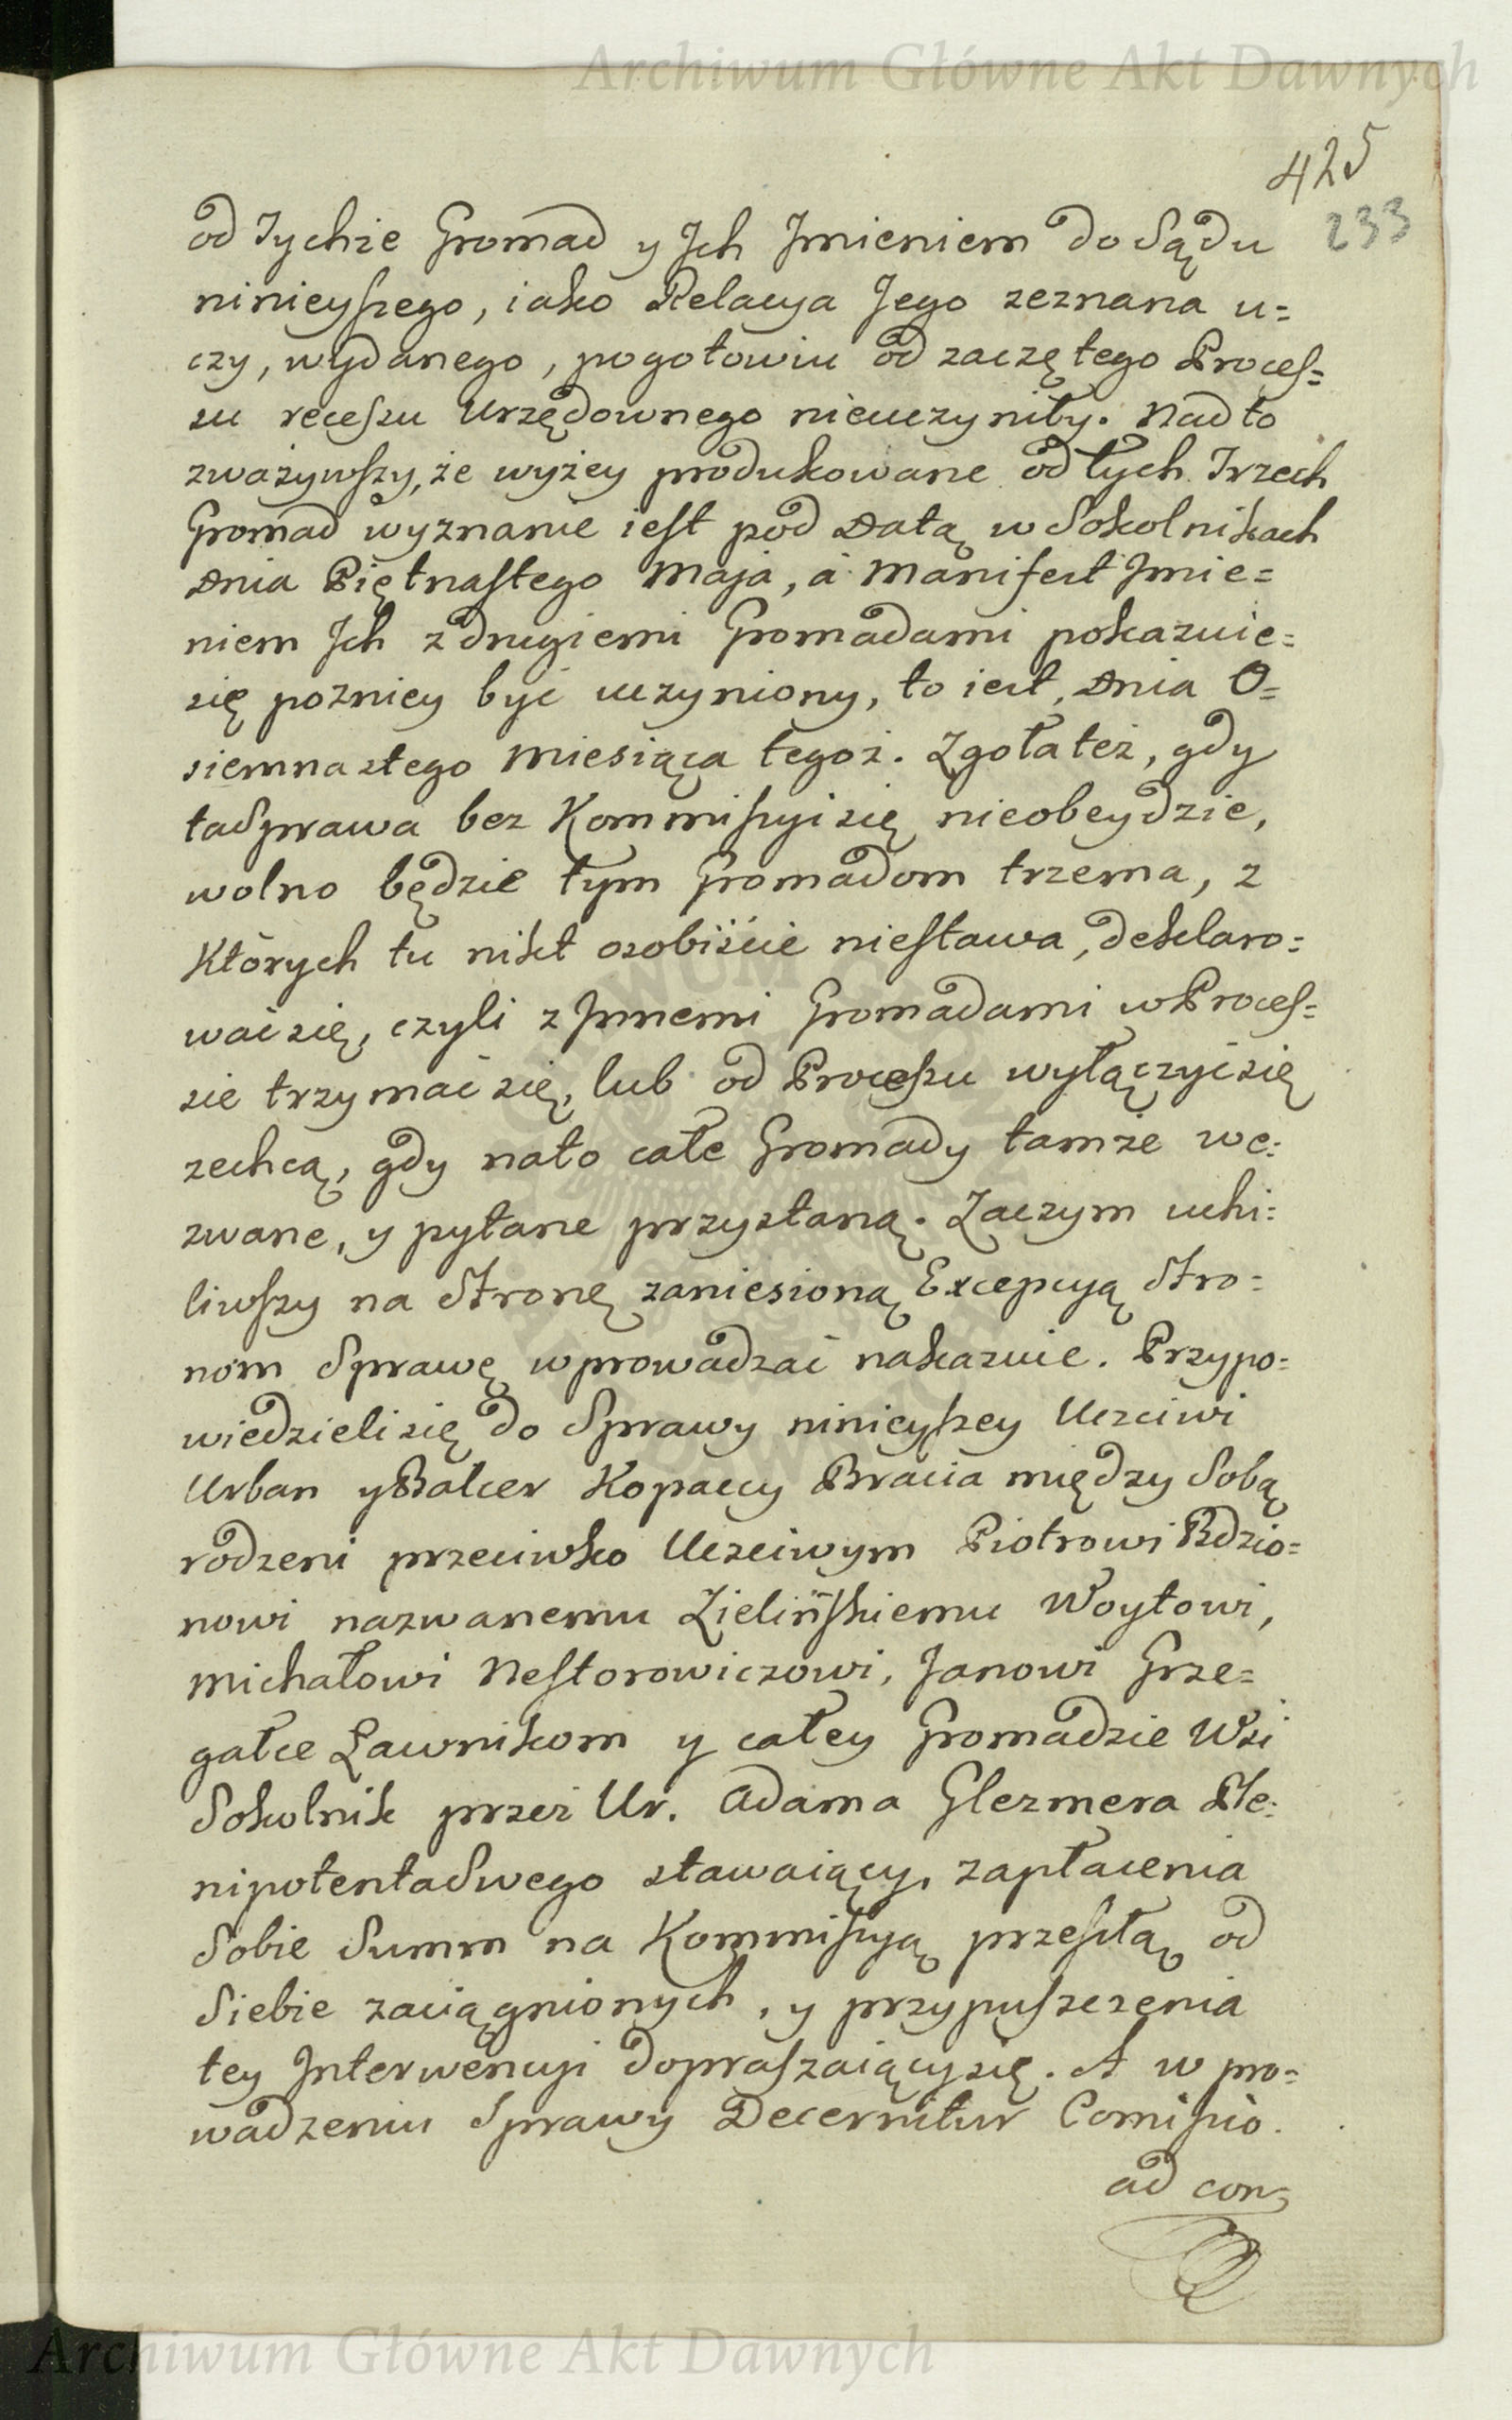 Archiwum Główne Akt Dawnych
425
233
od Tychże Gromad y Jch Jmieniem do Sądu
ninieyszego, iako Relacya Jego zeznana u=
czy, wydanego, pogotowiu od zaczętego Proces=
su recessu Urzędownego nieuczyniły. Nadto
zważywszy, że wyżey produkowane od tych Trzech
Gromad wyznanie iest pod Datą w Sokolnikach
Dnia Piętnastego Maja, á Manifest Jmie=
niem Jch z drugiemi Gromadami pokazuie=
się pozniey być uczyniony, to iest, Dnia O=
siemnastego Miesiąca tegoż. Zgoła też, gdy
ta Sprawa bez Kommissyi się nieobeydzie,
wolno będzie tym Gromadom trzema, z
Których tu nikt osobiście niestawa, deklaro=
wać się, czyli z Jnnemi Gromadami w Proces=
sie trzymać się, lub od Processu wyłączyć się
zechcą, gdy nato całe Gromady tamże we=
zwane, y pytane przystaną. Zaczym uchi=
liwszy na Stronę zaniesioną Excepcyą Stro=
nom Sprawę wprowadzać nakazuie. Przypo=
wiedzieli się do Sprawy ninieyszey Uczciwi
Urban y Balcer Kopaccy Bracia między Sobą
rodzeni przeciwko Uczciwym Piotrowi Bdzio=
nowi nazwanemu Zielińskiemu Woytowi,
Michałowi Nestorowiczowi, Janowi Grze=
gałce Ławnikom y całey Gromadzie Wsi
Sokolnik przez Ur. Adama Glezmera Ple=
nipotenta Swego stawaiący, zapłacenia
Sobie Summ na Kommissyą przeszłą od
Siebie zaciągnionych, y przypuszczenia
tey Jnterwencyi dopraszaiący się. A w pro=
wadzeniu Sprawy Decernitur Comissio
ad con=
Archiwum Główne Akt Dawnych